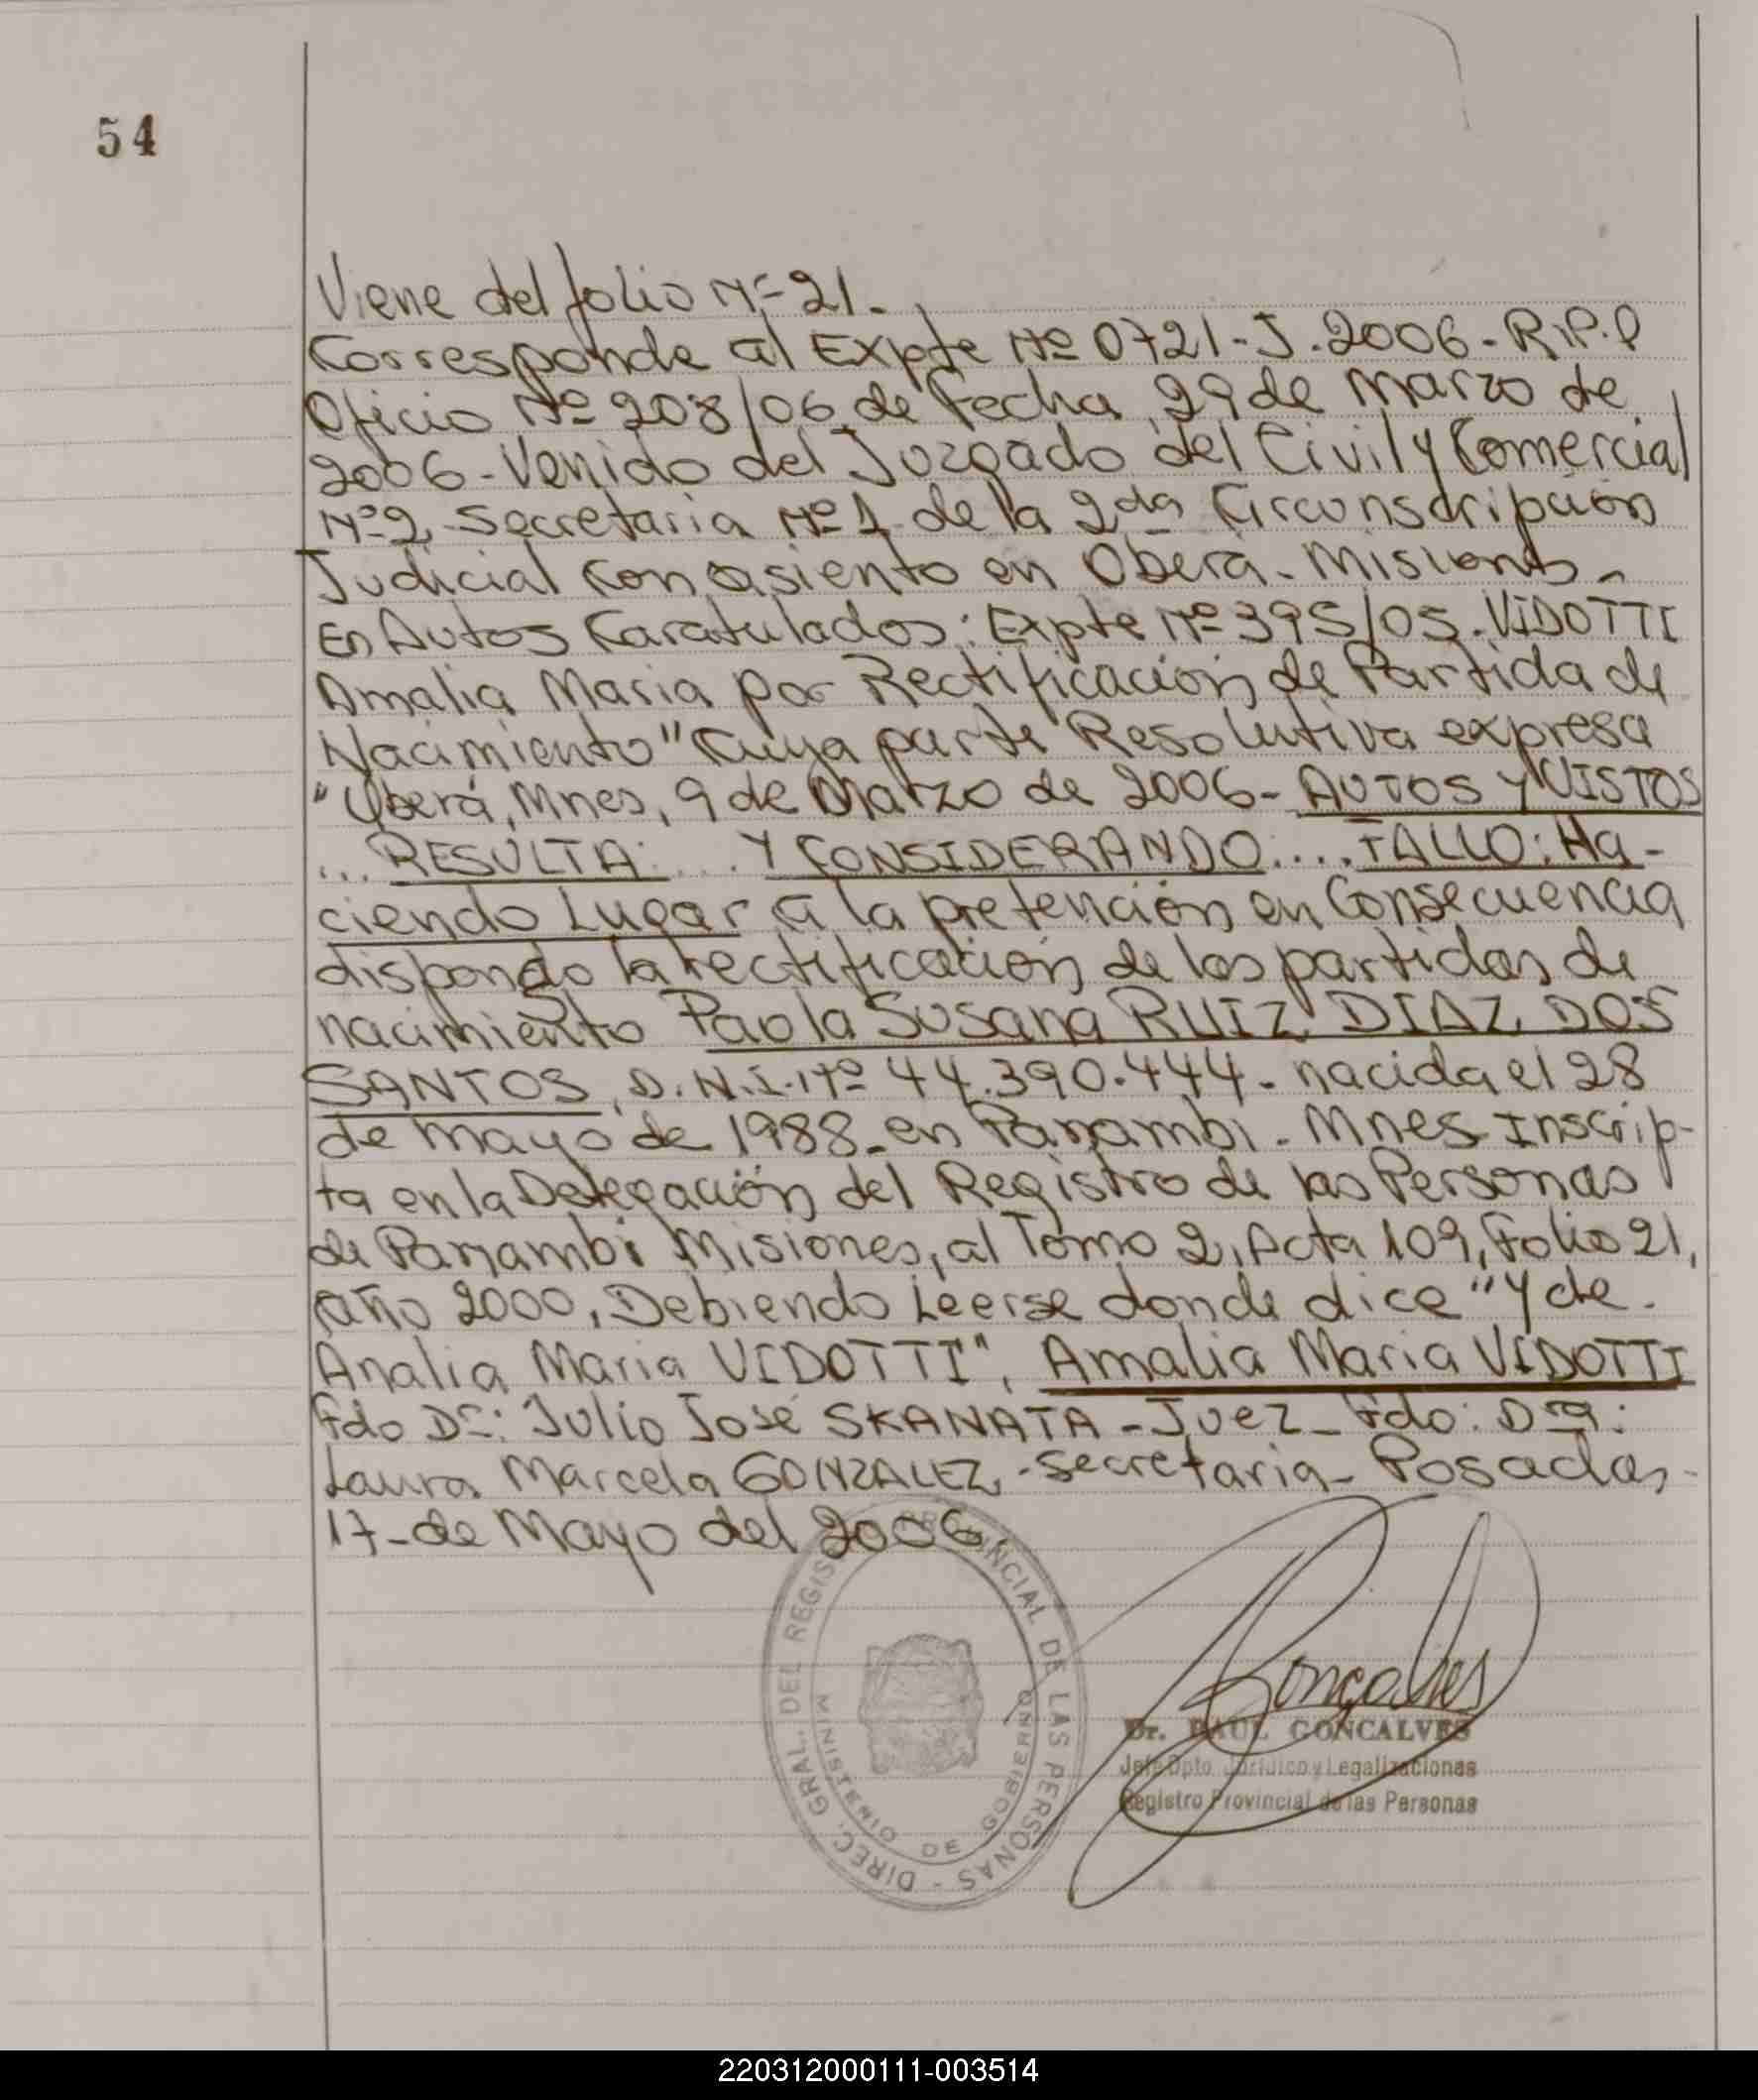 54
Viene del folio Nº 21.
Corresponde al Expte Nº 0721-J.2006-R.P.P
Oficio Nº 208/06 de Fecha 29 de Marzo de
2006-Venido del Juzgado del Civil y Comercial
Nº2, Secretaria Nº1 de la 2da Circunscripción
Judicial con asiento en Oberá-Misiones-
En Autos Caratulados: Expte Nº 395/05. VIDOTTI
Amalia Maria por Rectificación de Partida de
Nacimiento" Cuya parte Resolutiva expresa
"Oberá, Mnes, 9 de Marzo de 2006- AUTOS Y VISTOS
... RESULTA: ... Y CONSIDERANDO.... FALLO: Ha-
ciendo Lugar a la pretención en Consecuencia
dispondo la rectificación de las partidas de
nacimiento Paola Susana RUIZ DIAZ DOS
SANTOS, D.N.I. Nº 44.390.444. nacida el 28
de mayo de 1988- en Panambi. Mnes Inscrip-
ta en la Delegación del Registro de las Personas
de Panambi Misiones, al Tomo 2, Acta 109, Folio 21,
Año 2000, Debiendo Leerse donde dice "Y de
Analia Maria VIDOTTI", Amalia Maria VIDOTTI
Fdo Dr.: Julio José SKANATA-Juez- Fdo: Dra:
Laura Marcela GONZALEZ-Secretaria- Posadas-
17-de Mayo del 2006.
DIREC. GRAL. DEL REGISTRO PROVINCIAL DE LAS PERSONAS -
MINISTERIO DE GOBIERNO
Goncalves
Dr. RAUL GONCALVES
Jefe Dpto. Jurídico y Legalizaciones
Registro Provincial de las Personas
220312000111-003514